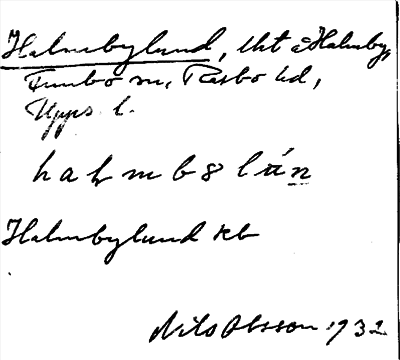 Halmbylund, lht i Halmby,
Funbo sn, Rasbo hd,
Upps. l.
halmb8lún
Halmbylund kb
Nils Olsson 1932